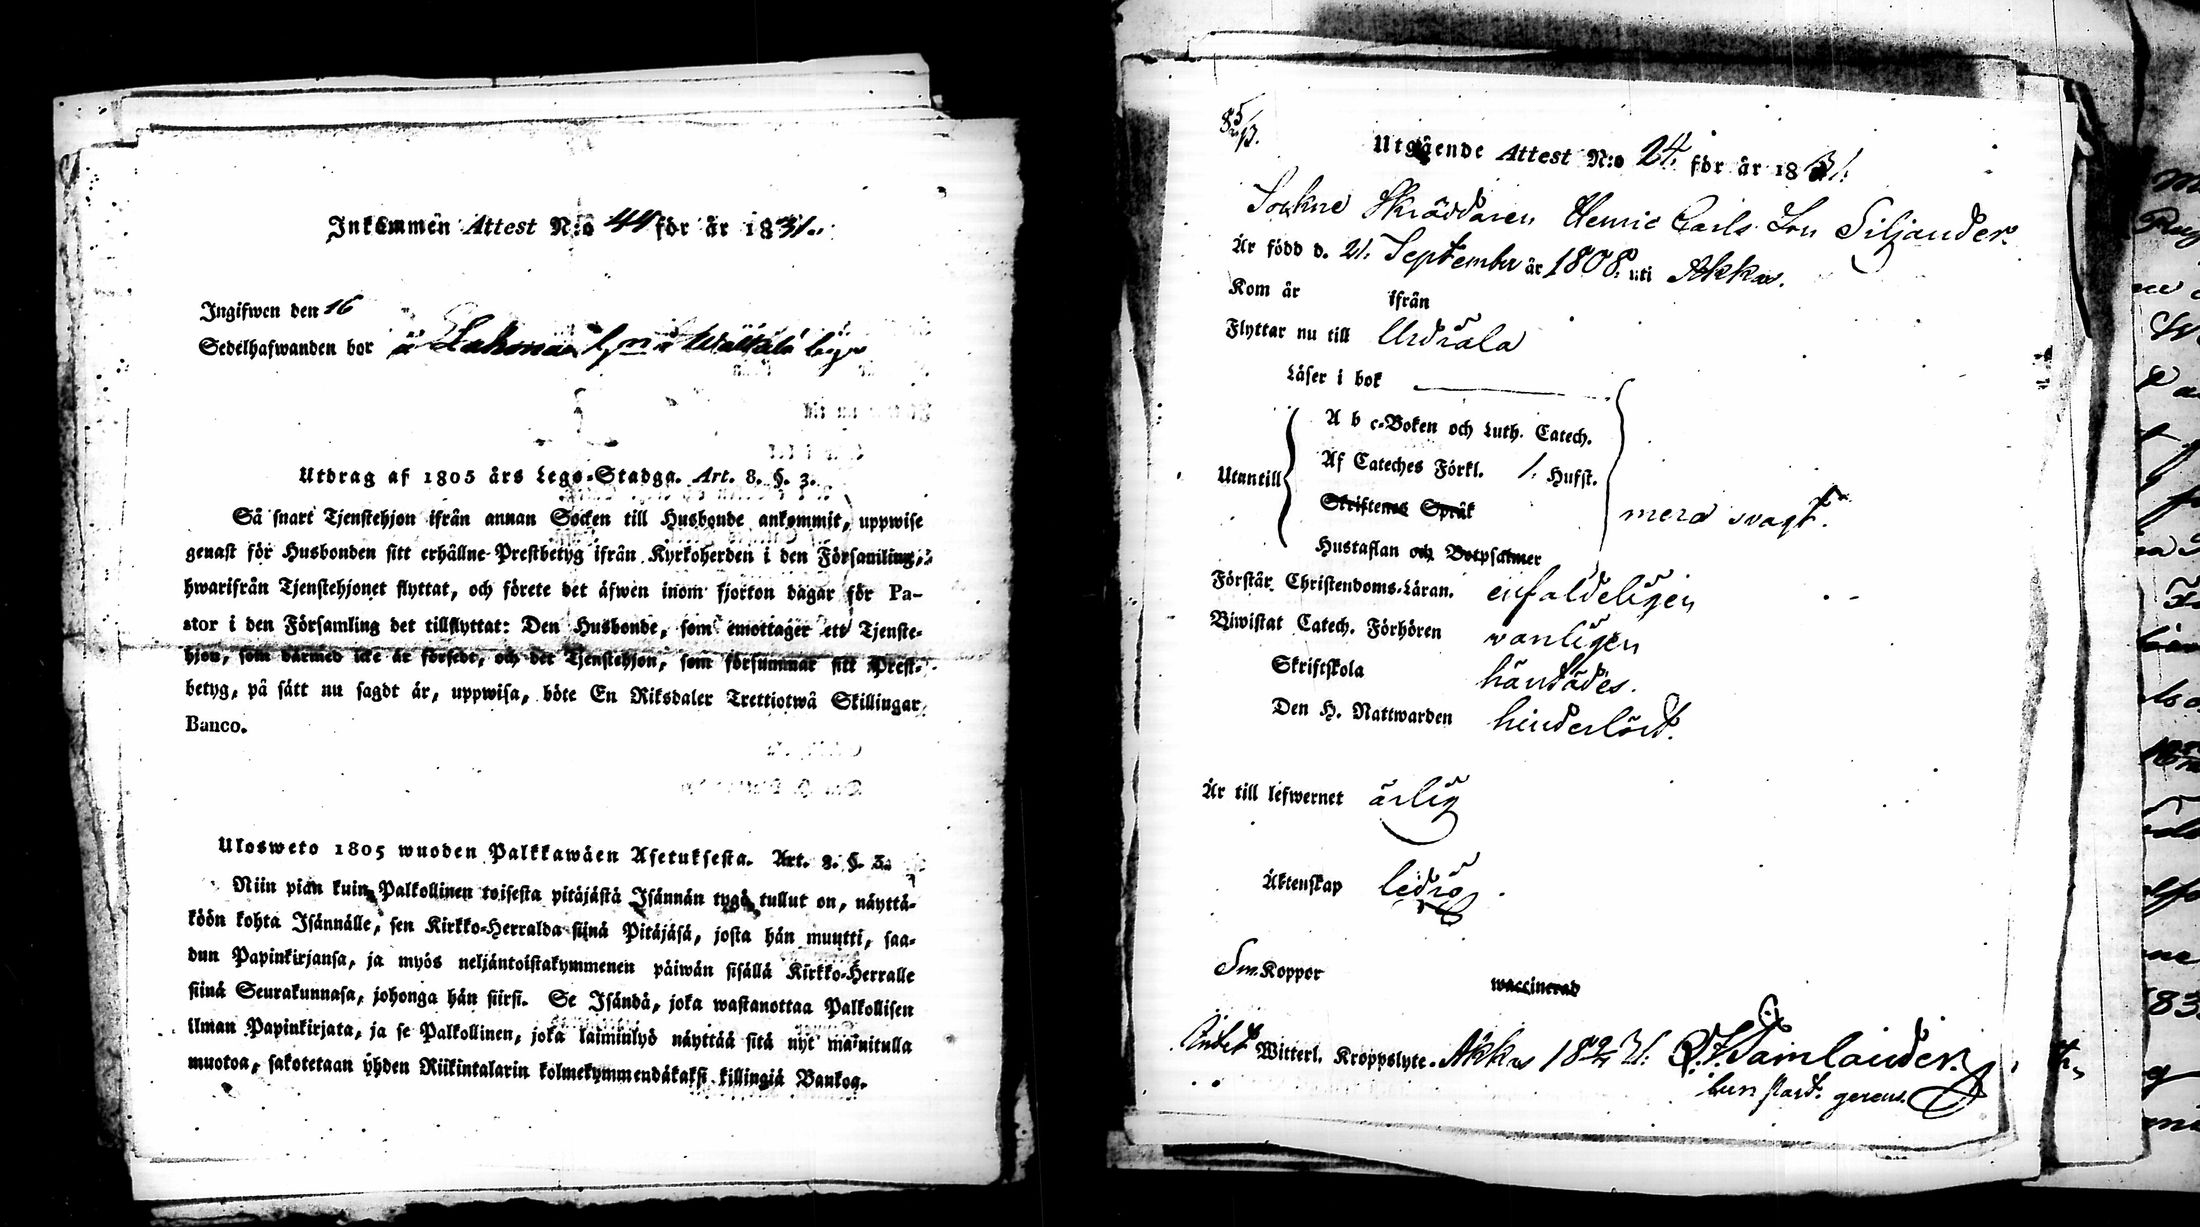 Inkommen Attest N:o 44 för år 1831.
Ingifwen den 16
Sedelhafwanden bor å
Utdrag af 1805 års Lego-Stadga. Art. 8. §. 3.
Så snart Tjenstehjon ifrån annan Socken till Husbonde ankommit, uppwise
genast för Husbonden sitt erhållne Prestbetyg ifrån Kyrkoherden i den Församling,
hwarifrån Tjenstehjonet flyttat, och förete det äfwen inom fjorton dagar för Pa-
stor i den Församling det tillflyttat: Den Husbonde, som emottager ett Tjenste-
hjon, som därmed icke är försedt, och det Tjenstehjon, som försummar sitt Prest-
betyg, på sätt nu sagdt är, uppwisa, böte En Riksdaler Trettiotwå Skillingar
Banco.
Ulosweto 1805 wuoden Palkkawäen Asetuksesta. Art. 8. §. 3.
Niin pian kuin Palkollinen toisesta pitäjästä Isännän tygö tullut on, näyttä-
köön kohta Isännälle, sen Kirkko-Herralda siinä Pitäjäsä, josta hän muutti, saa-
dun Papinkirjansa, ja myös neljäntoistakymmenen päiwän sisällä Kirkko-Herralle
siinä Seurakunnasa, johonga hän siirsi. Se Isändä, joka wastanottaa Palkollisen
ilman Papinkirjata, ja se Palkollinen, joka laiminlyö näyttää sitä nyt mainitulla
muotoa, sakotetaan yhden Riikintalarin kolmekymmendäkaksi killingiä Bankoa.
85/93.
Utgående Attest N:o 24. för år 1831.
Sockne Skräddaren Henric Carls Son Siljander.
Är född d. 21. September år 1808. uti Akkas.
Kom år ifrån
Flyttar nu till Urdiala
Läser i bok
A b c-Boken och Luth. Catech.
Af Cateches Förkl. 1. Hufst.
Utantill
Skriftenes Språk
mera svagt.
Hustaflan och Botpsalmer
Förstår Christendoms-Läran. enfaldeligen
Biwistat Catech. Förhören wanligen
Skriftskola
Den H. Nattwarden hinderlöst.
Är till lefwernet ärlig
Äktenskap ledig
Sm.Koppor waccinerad
Witterl. Kroppslyte. Akkas